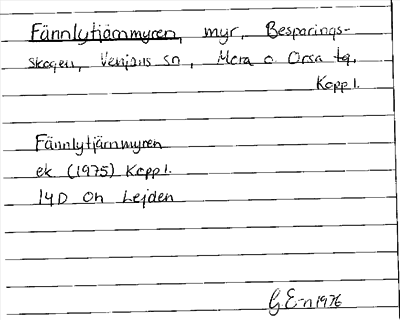 Fännlytjärnmyren, myr, Besparings-
skogen, Venjans sn, Mora o Orsa tg,
Koppl.
Fännlytjärnmyren
ek (1975) Koppl.
14D 0h Lejden
GE-n 1976